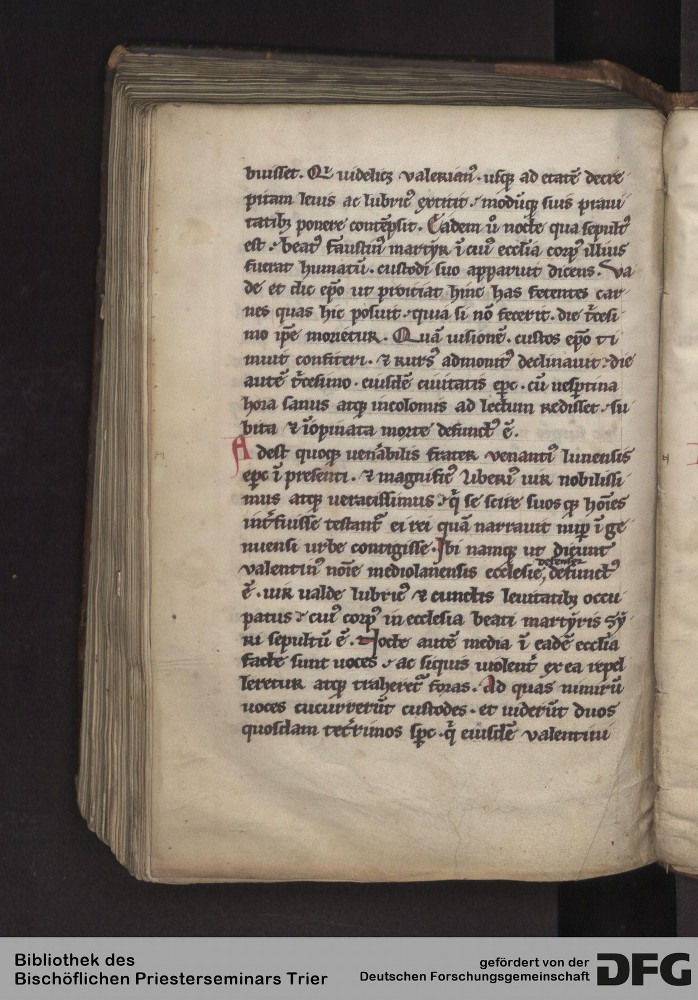 buisset. Qui uidelicꝫ ualerian᷒. usqꝫ ad etatē decre
pitam leuis ac lubric᷒ extitit. modūqꝫ suis praui
tatibꝫ ponere contēpsit. Eadem ů nocte qua sepult᷒
est. beat᷒ faustin᷒ martyr ī cui᷒ ecclīa corp᷒ illius
fuerat humatū. custodi suo apparuit dicens. Va
de et dic ep̄o ut proiciat hinc has fetentes car
nes quas hic posuit. quia si nō fecerit. die t̄cesi
mo ip̄e morietur. Quā uisionē. custos ep̄o ti
muit confiteri. ⁊ rurs᷒ admonit᷒ declinauit. die
autē t̄cesimo. eiusdē ciuitatis ep̄c. cū uesp̄tina
hora sanus atqꝫ incolomis ad lectum redisset. su
bita ⁊ īopinata morte defunct᷒ ē.
Adest quoqꝫ uenābilis frater uenanti᷒ lunensis
ep̄c ī presenti. ⁊ magnific᷒ liberi᷒ uir nobilissi
mus atqꝫ ueracissimus. q̄ se scire suosqꝫ hoīes
int̄fuisse testant᷑ ei rei quā narrauit nup̄ ī ge
nuensi urbe contigisse. Ibi namqꝫ ut dicunt
ualentin᷒ noīe mediolanensis ecclesie, defensor defunct᷒
ē. uir ualde lubric᷒ ⁊ cunctis leuitatibꝫ occu
patus. cui᷒ corp᷒ in ecclesia beati martyris Sy
ri sepultū ē. Nocte autē media ī eadē ecclīa
facte sunt uoces. ac siquis uiolent᷑ ex ea repel
leretur atqꝫ traheret᷑ foras. Ad quas nimirū
uoces cucurrerūt custodes. et uiderūt duos
quosdam tet̄rimos sp̄c. q̄ eiusdē ualentini
Bibliothek des
Bischöflichen Priesterseminars Trier
gefördert von der
Deutschen Forschungsgemeinschaft
DFG